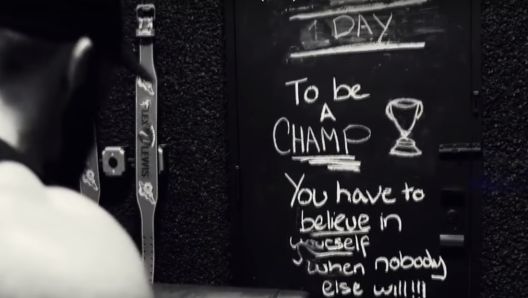 1 DAY
To be
A
CHAMP
You have to
believe in
yourself
when nobody
else will!!!
LEWIS